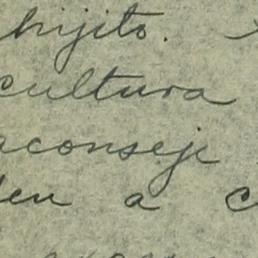 hijito.
cultura
aconseje
den a c